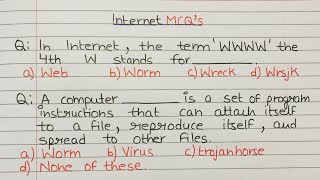 Internet MCQ's
Q: In Internet, the term 'WWWW' the
4th W stands for________.
a) Web b) Worm c) Wreck d) Wrsjk
Q: A computer ________ is a set of program
instructions that can attach itself
to a file, reproduce itself, and
spread to other files.
a) Worm b) Virus c) trojanhorse
d) None of these.